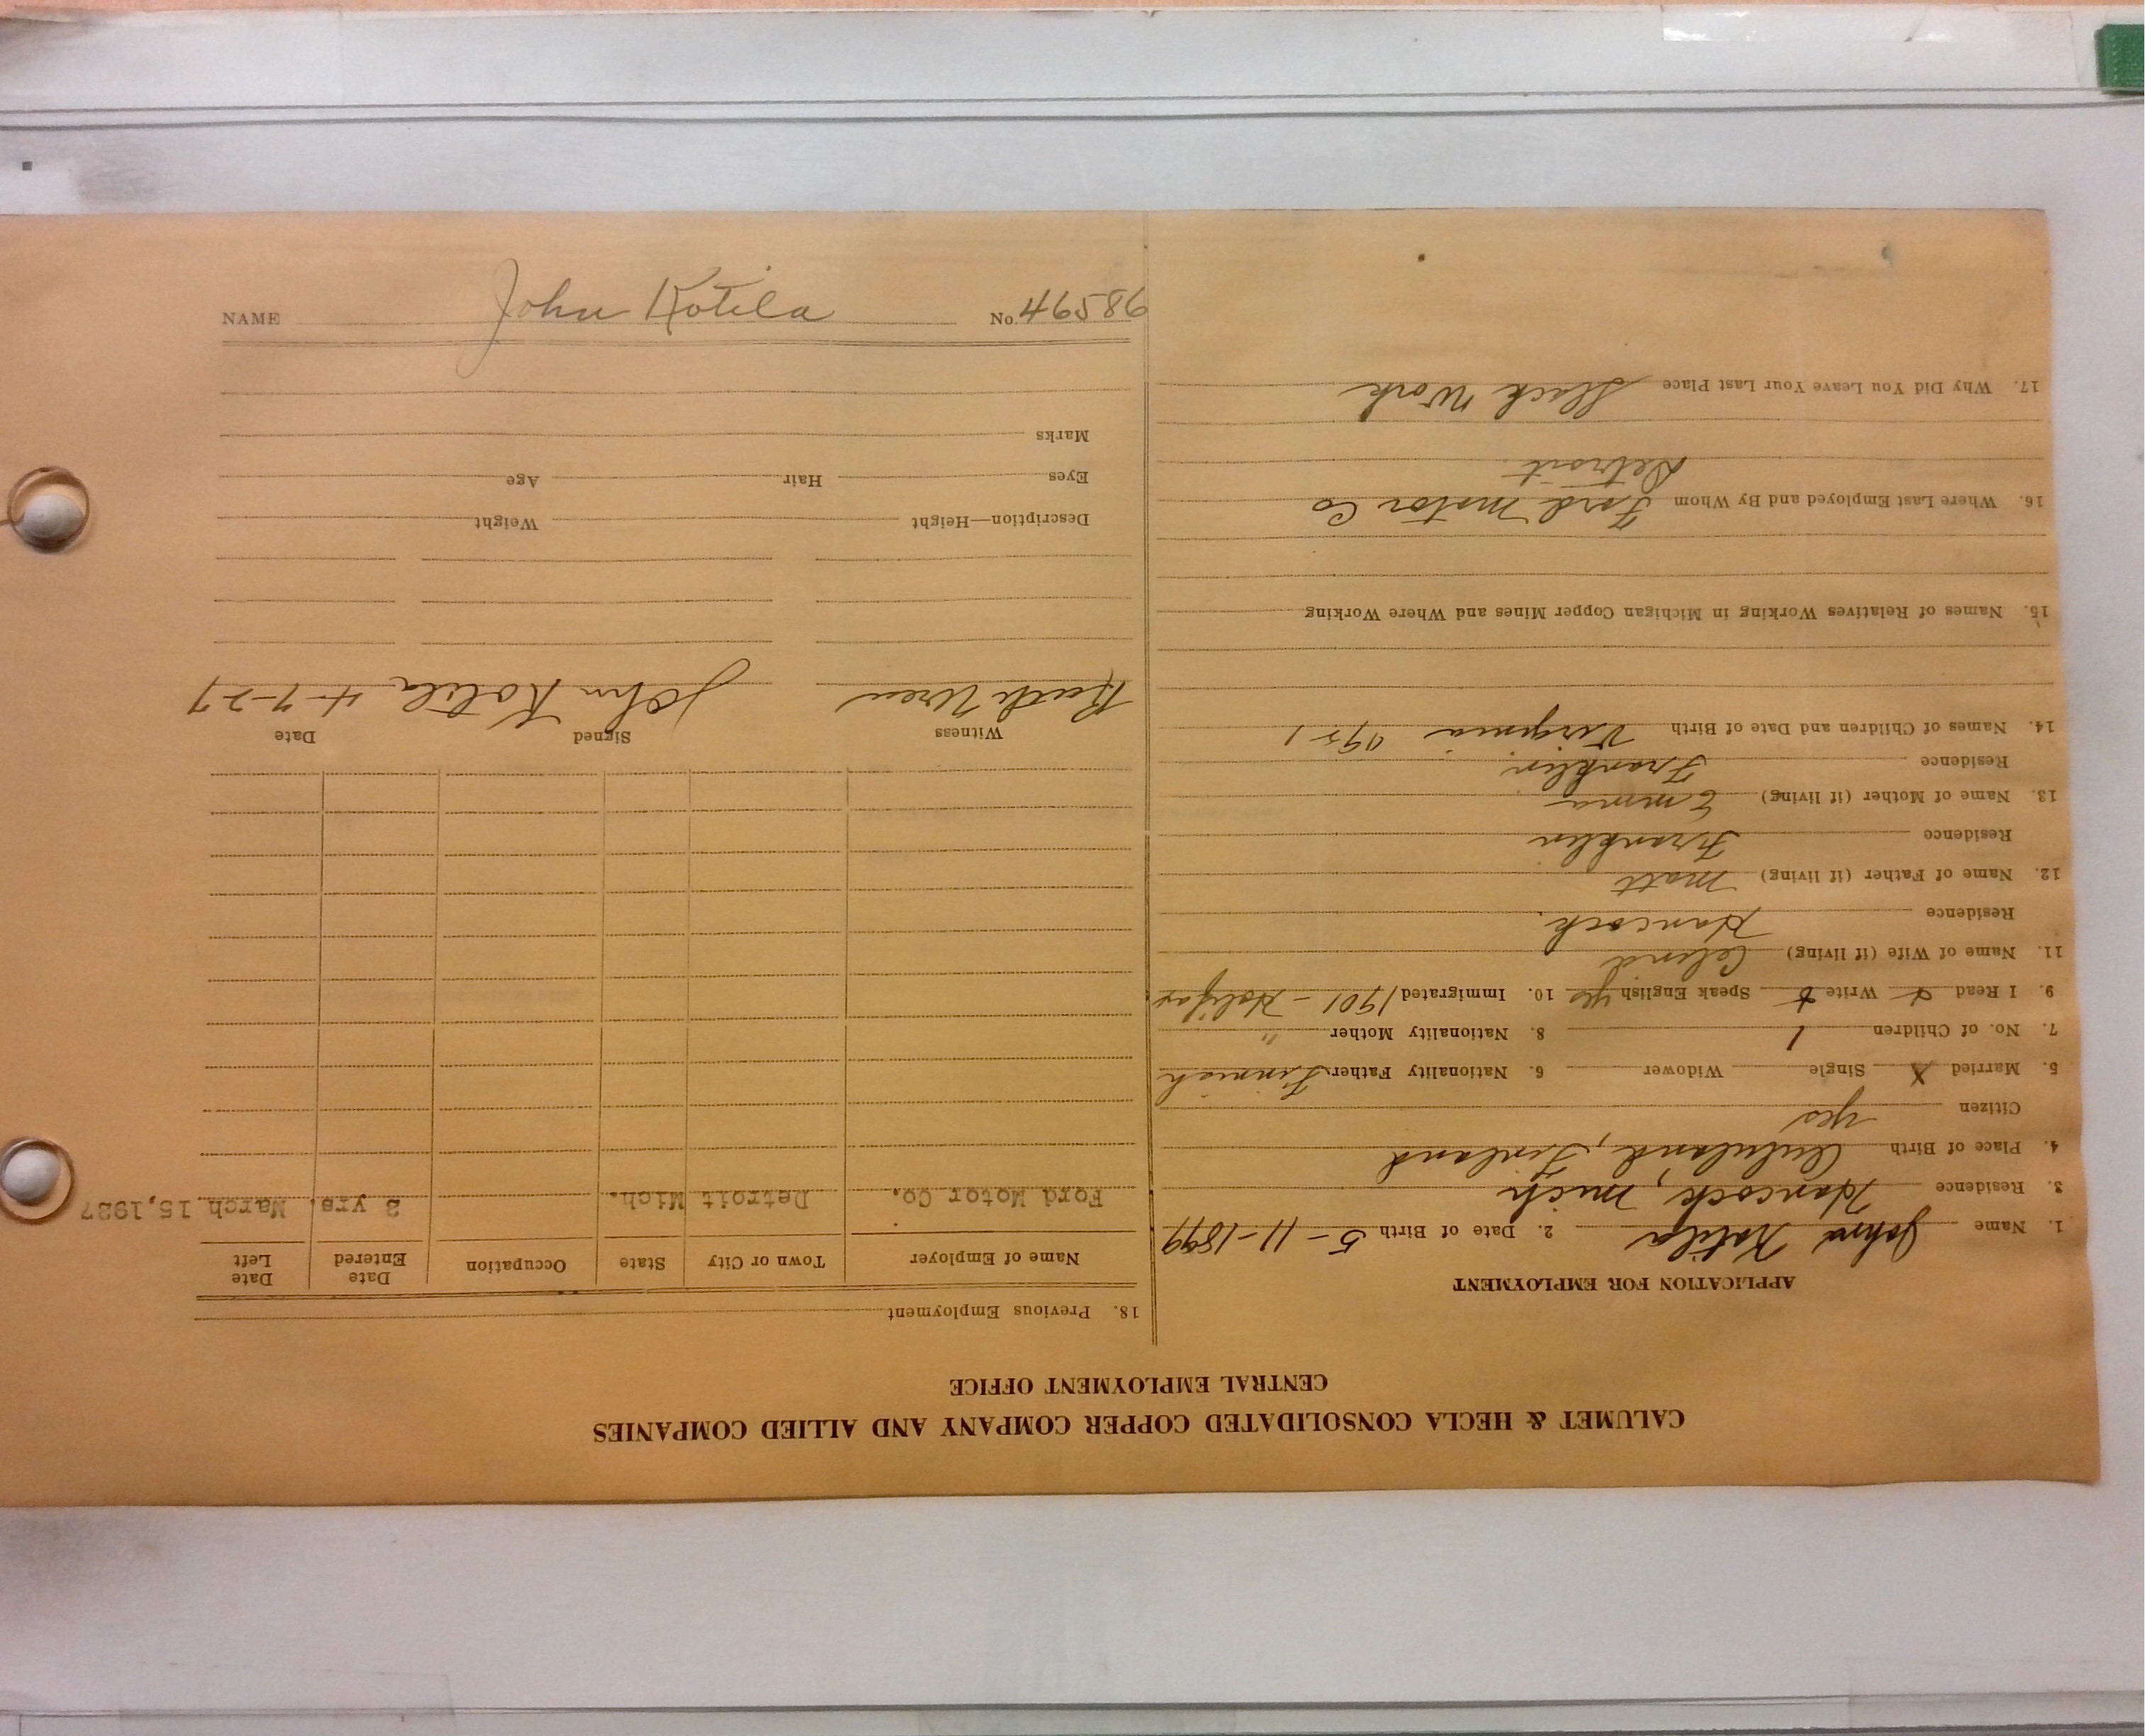 NAME John Kotila No. 46586
CALUMET & HECLA CONSOLIDATED COPPER COMPANY AND ALLIED COMPANIES
CENTRAL EMPLOYMENT OFFICE
APPLICATION FOR EMPLOYMENT
1. Name John Kotila 2. Date of Birth 5-11-1899
3. Residence Hancock, Mich
4. Place of Birth Finland
Citizen yes
5. Married X Single Widower 6. Nationality Father Finnish
7. No. of Children 1 8. Nationality Mother "
9. I Read Write Speak English yes 10. Immigrated 1901 - Halifax
11. Name of Wife (if living)
Residence Hancock.
12. Name of Father (if living) Matt
Residence Franklin
13. Name of Mother (if living) Emma
Residence Franklin
14. Names of Children and Date of Birth Virginia
15. Names of Relatives Working in Michigan Copper Mines and Where Working
16. Where Last Employed and By Whom Ford Motor Co
Detroit
17. Why Did You Leave Your Last Place Slack Work
18. Previous Employment
Name of Employer Town or City State Occupation Date Entered Date Left
Ford Motor Co. Detroit Mich. 3 yrs. March 15,1927
Witness Signed Date
John Kotila 4-7-27
Description—Height Weight
Eyes Hair Age
Marks